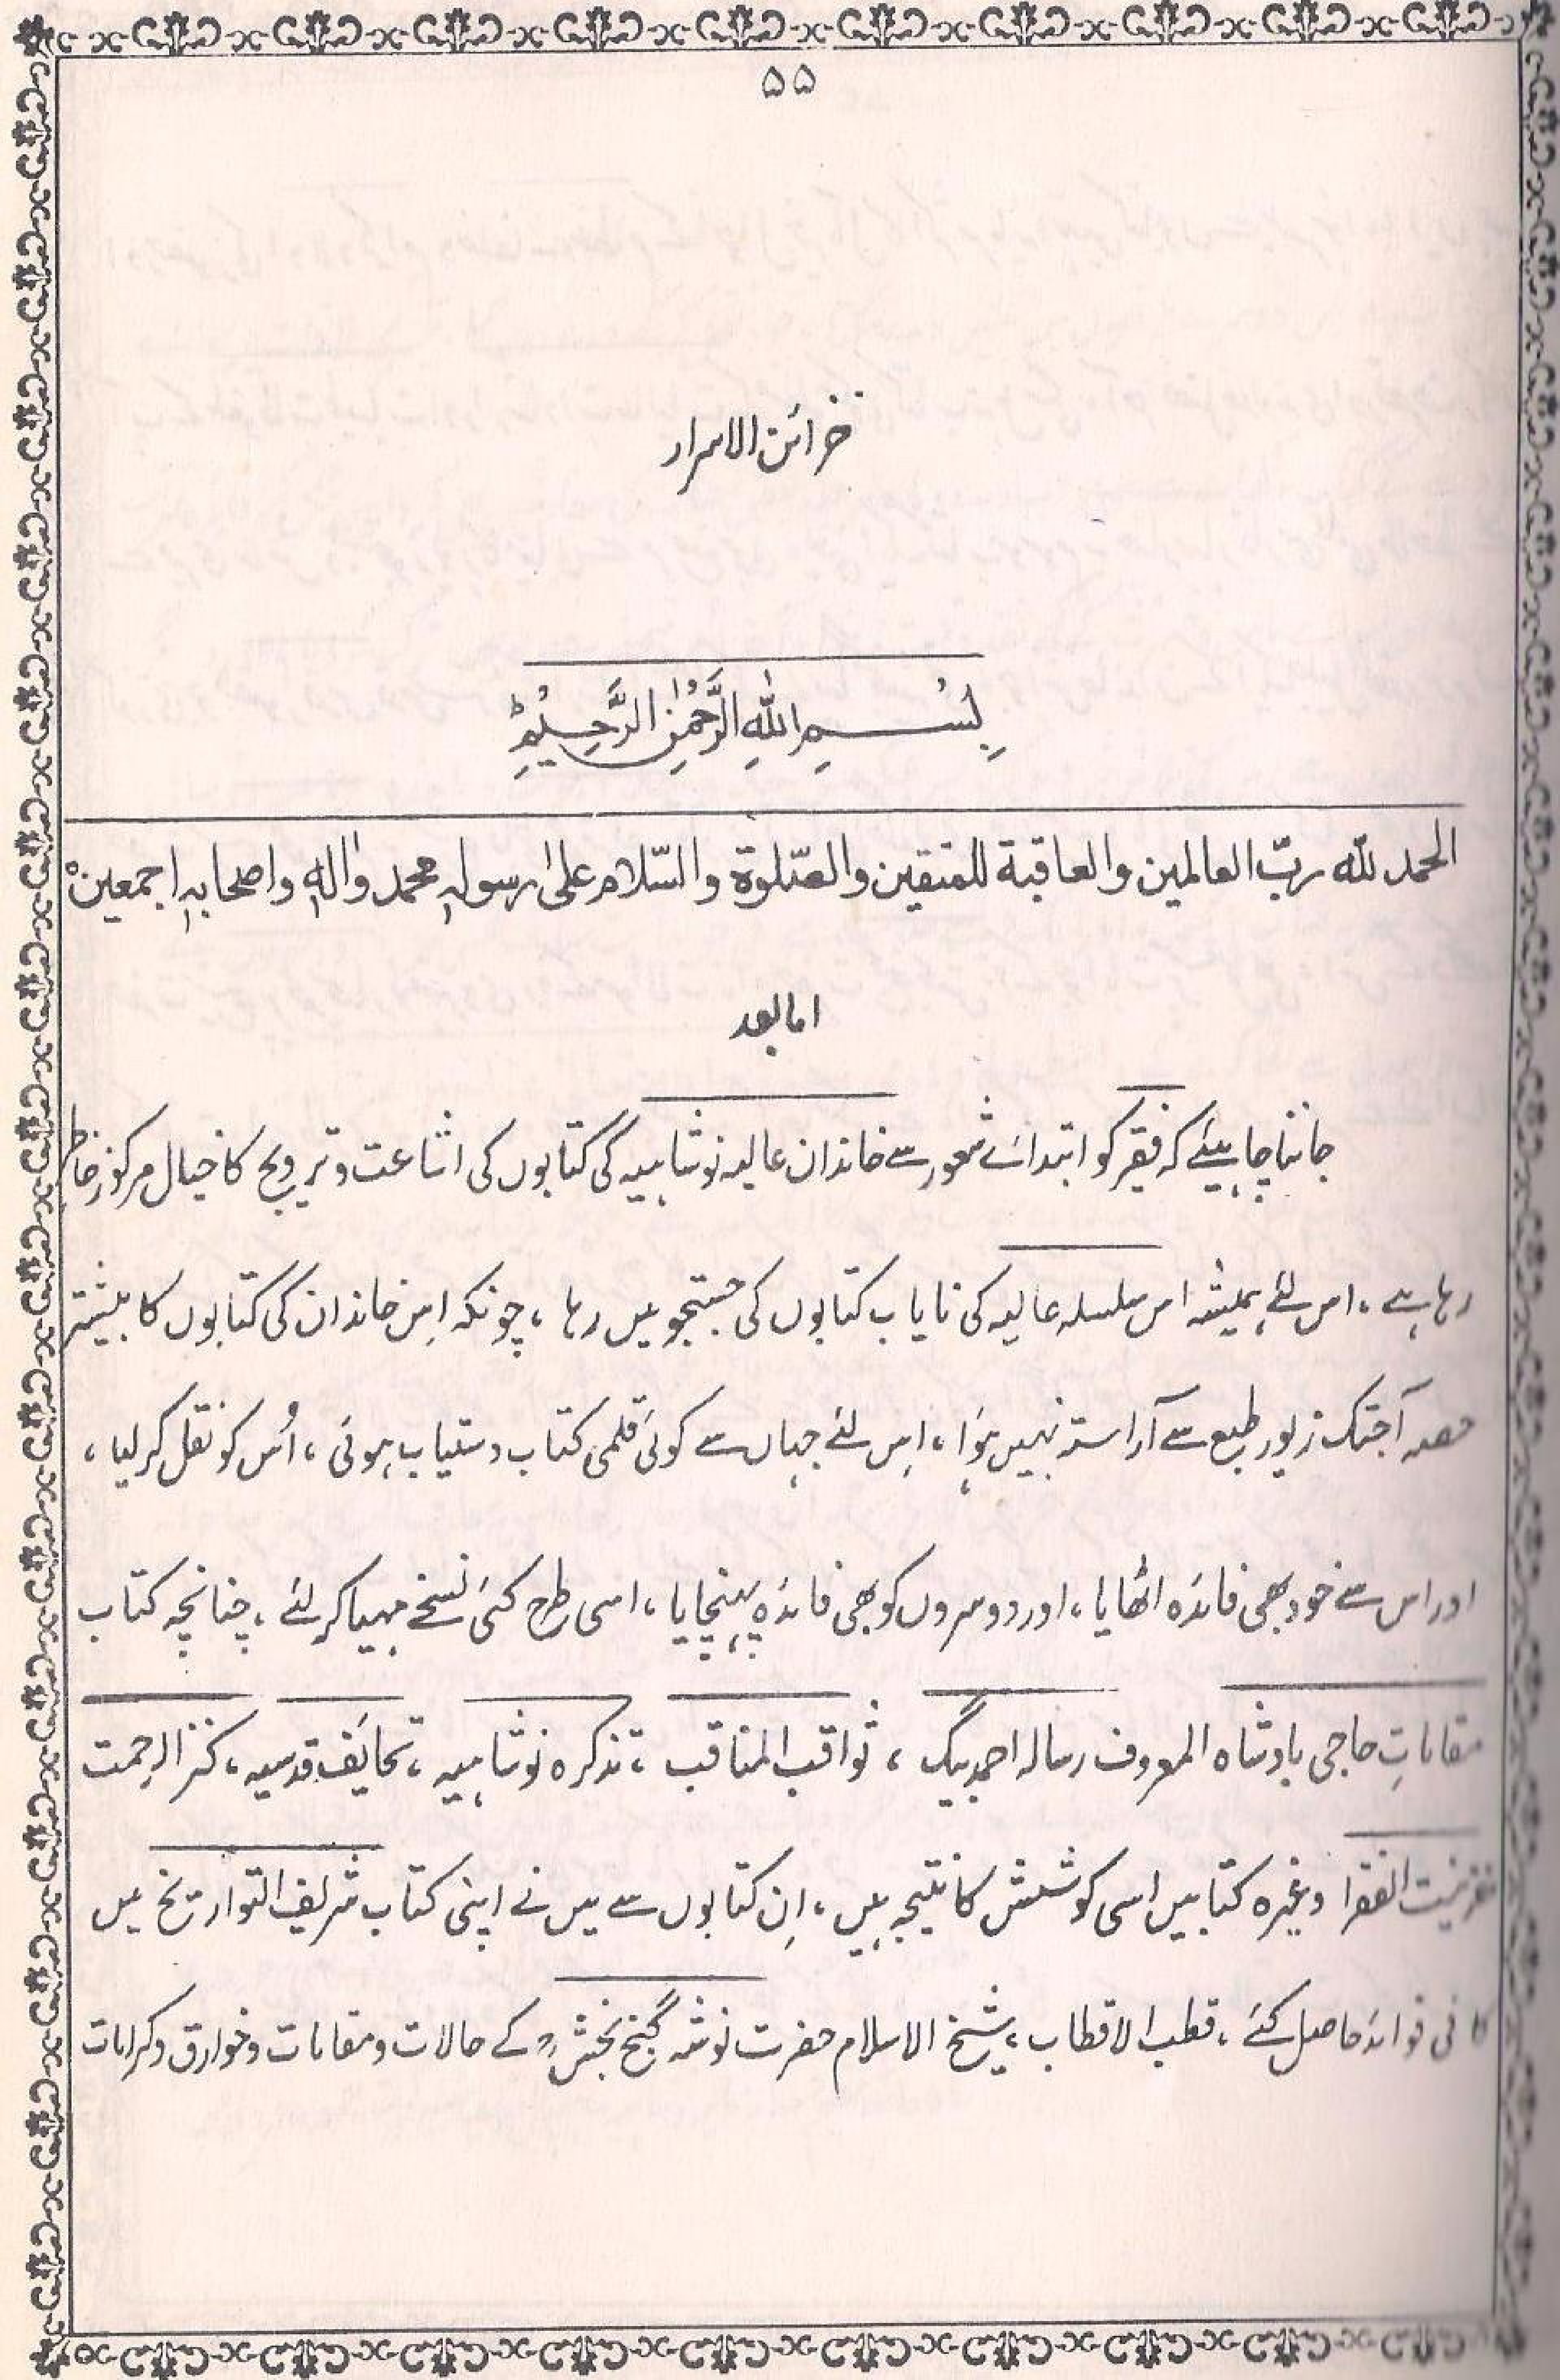 ۵۵
خزائن الاسرار
بِسْمِ اللهِ الرَّحْمٰنِ الرَّحِيْمِ ط
الحمد لله ربّ العالمین والعاقبة للمتقین والصّلوٰة والسّلام علیٰ رسولہٖ محمد واٰلہٖ واصحابہٖ اجمعین ہ
اما بعد
جاننا چاہیئے کہ فقیر کو ابتدائے شعور سے خاندان عالیہ نوشاہیہ کی کتابوں کی اشاعت و ترویج کا خیال مرکوزِ خاطر
رہا ہے، اس لئے ہمیشہ اس سلسلہ عالیہ کی نایاب کتابوں کی جستجو میں رہا، چونکہ اِس خاندان کی کتابوں کا بیشتر
حصہ آجتک زیور طبع سے آراستہ نہیں ہؤا، اِس لئے جہاں سے کوئی قلمی کتاب دستیاب ہوئی، اُس کو نقل کر لیا،
اور اس سے خود بھی فائدہ اٹھایا، اور دوسروں کو بھی فائدہ پہنچایا، اسی طرح کئی نسخے مہیا کر لئے، چنانچہ کتاب
مقاماتِ حاجی بادشاہ المعروف رسالہ احمد بیگ، ثواقب المناقب، تذکرہ نوشاہیہ، تحایٔف قدسیہ، کنز الرحمت
خزینت الفقرا وغیرہ کتابیں اسی کوشش کا نتیجہ ہیں، اِن کتابوں سے میں نے اپنی کتاب شریف التواریخ میں
کافی فوائد حاصل کئے، قطب الاقطاب، شیخ الاسلام حضرت نوشہ گنج بخشؒ کے حالات و مقامات و خوارق و کرامات